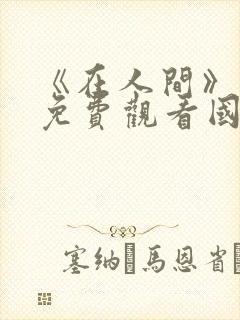 《在人間》
免費觀看國
塞纳馬恩省